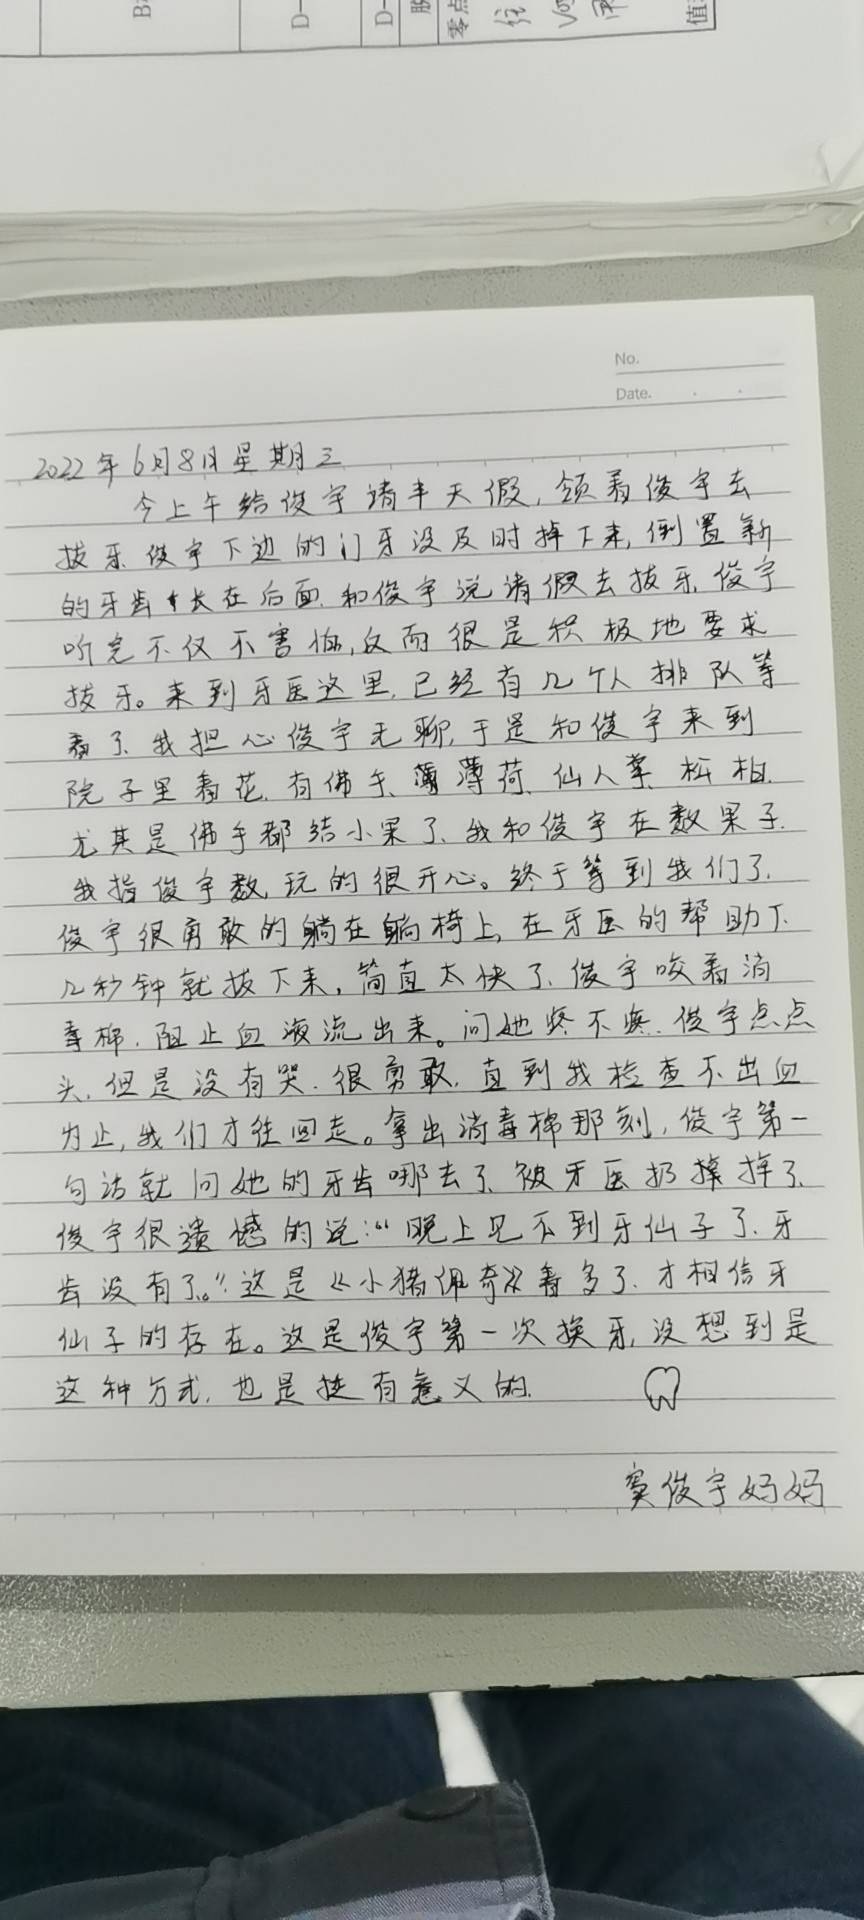 B
D-
D-
零点
值
No.
Date.
2022年6月8日星期三
今上午给俊宇请半天假,领着俊宇去
拔牙.俊宇下边的门牙没及时掉下来,倒置新
的牙齿长在后面.和俊宇说请假去拔牙,俊宇
听完不仅不害怕,反而很是积极地要求
拔牙。来到牙医这里,已经有几个人排队等
着了.我担心俊宇无聊,于是和俊宇来到
院子里看花.有佛手、薄荷、仙人掌、松柏.
尤其是佛手都结小果了、我和俊宇在数果子.
我指俊宇数,玩的很开心。终于等到我们了,
俊宇很勇敢的躺在躺椅上,在牙医的帮助下
几秒钟就拔下来,简直太快了、俊宇咬着消
毒棉.阻止血液流出来。问她疼不疼.俊宇点点
头,但是没有哭.很勇敢,直到我检查不出血
为止,我们才往回走。拿出消毒棉那刻,俊宇第一
句话就问她的牙齿哪去了、被牙医扔掉了、
俊宇很遗憾的说:“晚上见不到牙仙子了、牙
齿没有了。”这是《小猪佩奇》看多了.才相信牙
仙子的存在。这是俊宇第一次换牙,没想到是
这种方式,也是挺有意义的.
窦俊宇妈妈